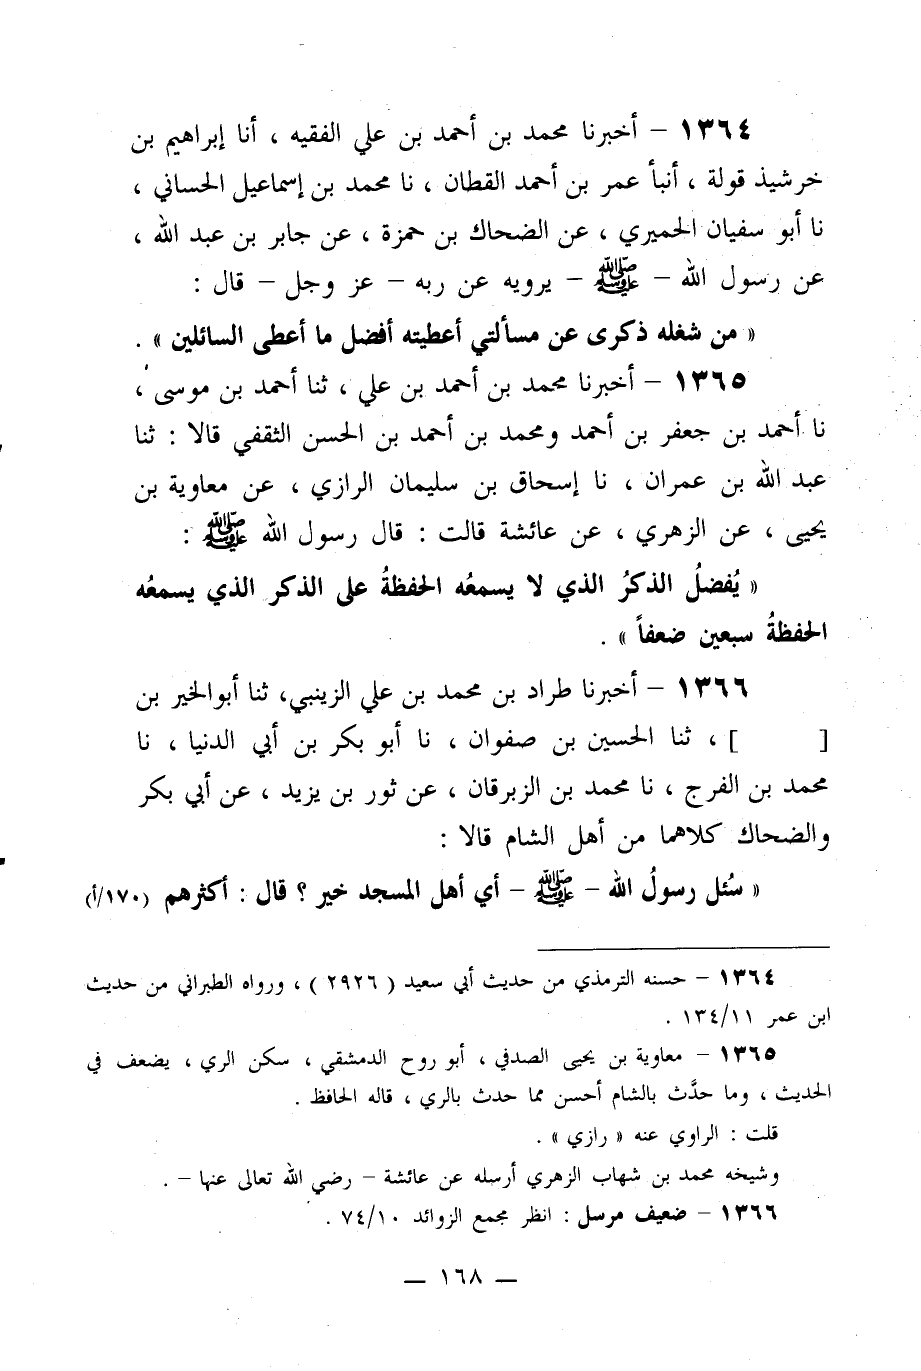 ١٣٦٤ – أخبرنا محمد بن أحمد بن علي الفقيه ، أنا إبراهيم بن
خرشيذ قولة ، أنبأ عمر بن أحمد القطان ، نا محمد بن إسماعيل الحساني ،
نا أبو سفيان الحميري ، عن الضحاك بن حمزة ، عن جابر بن عبد الله ،
عن رسول الله – ﷺ – يرويه عن ربه – عز وجل – قال :
« من شغله ذكرى عن مسألتي أعطيته أفضل ما أعطى السائلين » .
١٣٦٥ – أخبرنا محمد بن أحمد بن علي ، ثنا أحمد بن موسى ،
نا أحمد بن جعفر بن أحمد ومحمد بن أحمد بن الحسن الثقفي قالا : ثنا
عبد الله بن عمران ، نا إسحاق بن سليمان الرازي ، عن معاوية بن
يحيى ، عن الزهري ، عن عائشة قالت : قال رسول الله ﷺ :
« يُفضلُ الذكرُ الذي لا يسمعُه الحفظةُ على الذكر الذي يسمعُه
الحفظةُ سبعين ضعفاً » .
١٣٦٦ – أخبرنا طراد بن محمد بن علي الزينبي، ثنا أبوالخير بن
[ ] ، ثنا الحسين بن صفوان ، نا أبو بكر بن أبي الدنيا ، نا
محمد بن الفرج ، نا محمد بن الزبرقان ، عن ثور بن يزيد ، عن أبي بكر
والضحاك كلاهما من أهل الشام قالا :
« سُئل رسولُ الله – ﷺ – أي أهل المسجد خير ؟ قال : أكثرهم (١٧٠/أ)
١٣٦٤ – حسنه الترمذي من حديث أبي سعيد ( ٢٩٢٦ ) ، ورواه الطبراني من حديث
ابن عمر ١٣٤/١١ .
١٣٦٥ – معاوية بن يحيى الصدفي ، أبو روح الدمشقي ، سكن الري ، يضعف في
الحديث ، وما حدَّث بالشام أحسن مما حدث بالري ، قاله الحافظ .
قلت : الراوي عنه « رازي » .
وشيخه محمد بن شهاب الزهري أرسله عن عائشة – رضي الله تعالى عنها – .
١٣٦٦ – ضعيف مرسل : انظر مجمع الزوائد ٧٤/١٠ .
— ١٦٨ —